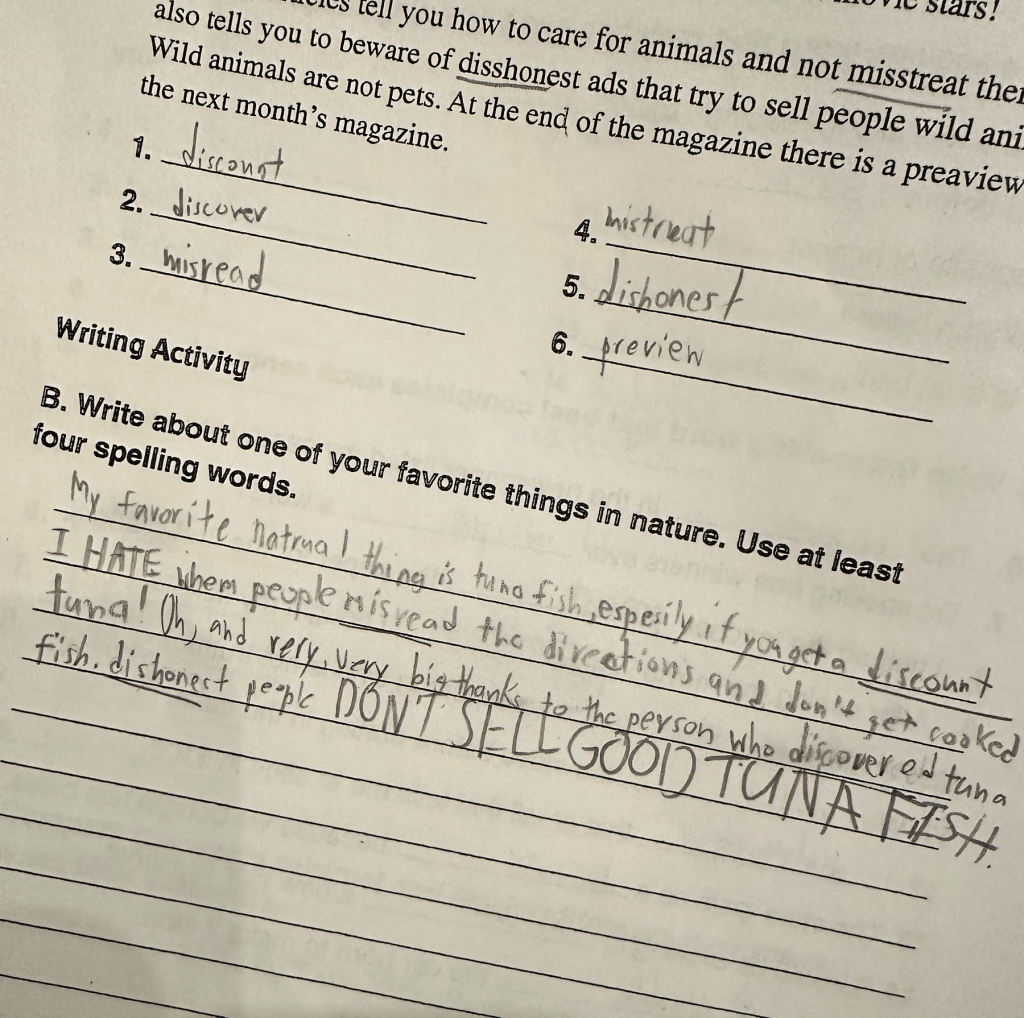 tell you how to care for animals and not misstreat
also tells you to beware of disshonest ads that try to sell people wild
Wild animals are not pets. At the end of the magazine there is a preaview
the next month's magazine.
1. discount
2. discover
3. misread
4. mistreat
5. dishonest
6. preview
Writing Activity
B. Write about one of your favorite things in nature. Use at least
four spelling words.
My favorite natrual thing is tuna fish, espesily if you get a discount
I HATE when people misread the directions and don't get cooked
tuna! Oh, and very, very big thanks to the person who discovered tuna
fish. dishonest people DON'T SELL GOOD TUNA FISH.